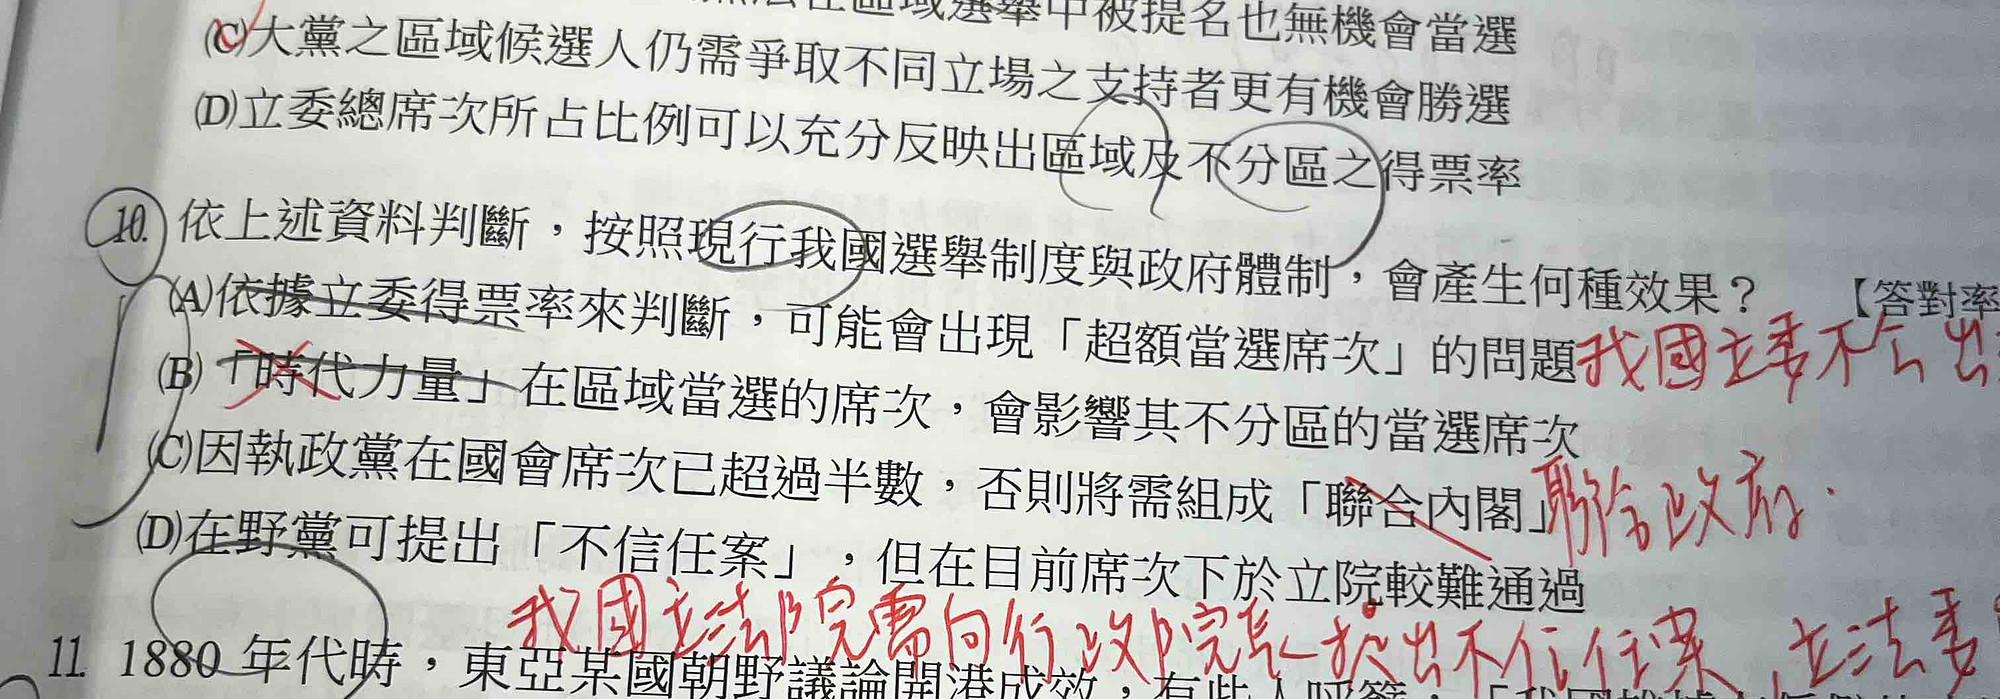 區域選舉中被提名也無機會當選
(C)大黨之區域候選人仍需爭取不同立場之支持者更有機會勝選
(D)立委總席次所占比例可以充分反映出區域及不分區之得票率
10. 依上述資料判斷，按照現行我國選舉制度與政府體制，會產生何種效果？ 【答對率
(A)依據立委得票率來判斷，可能會出現「超額當選席次」的問題 我國立委不會出
(B)「時代力量」在區域當選的席次，會影響其不分區的當選席次
(C)因執政黨在國會席次已超過半數，否則將需組成「聯合內閣」聯合政府.
(D)在野黨可提出「不信任案」，但在目前席次下於立院較難通過
我國立法院需向行政院長提出不信任案，立法委
11. 1880年代時，東亞某國朝野議論開港成效，有些人呼籲，「我國雖